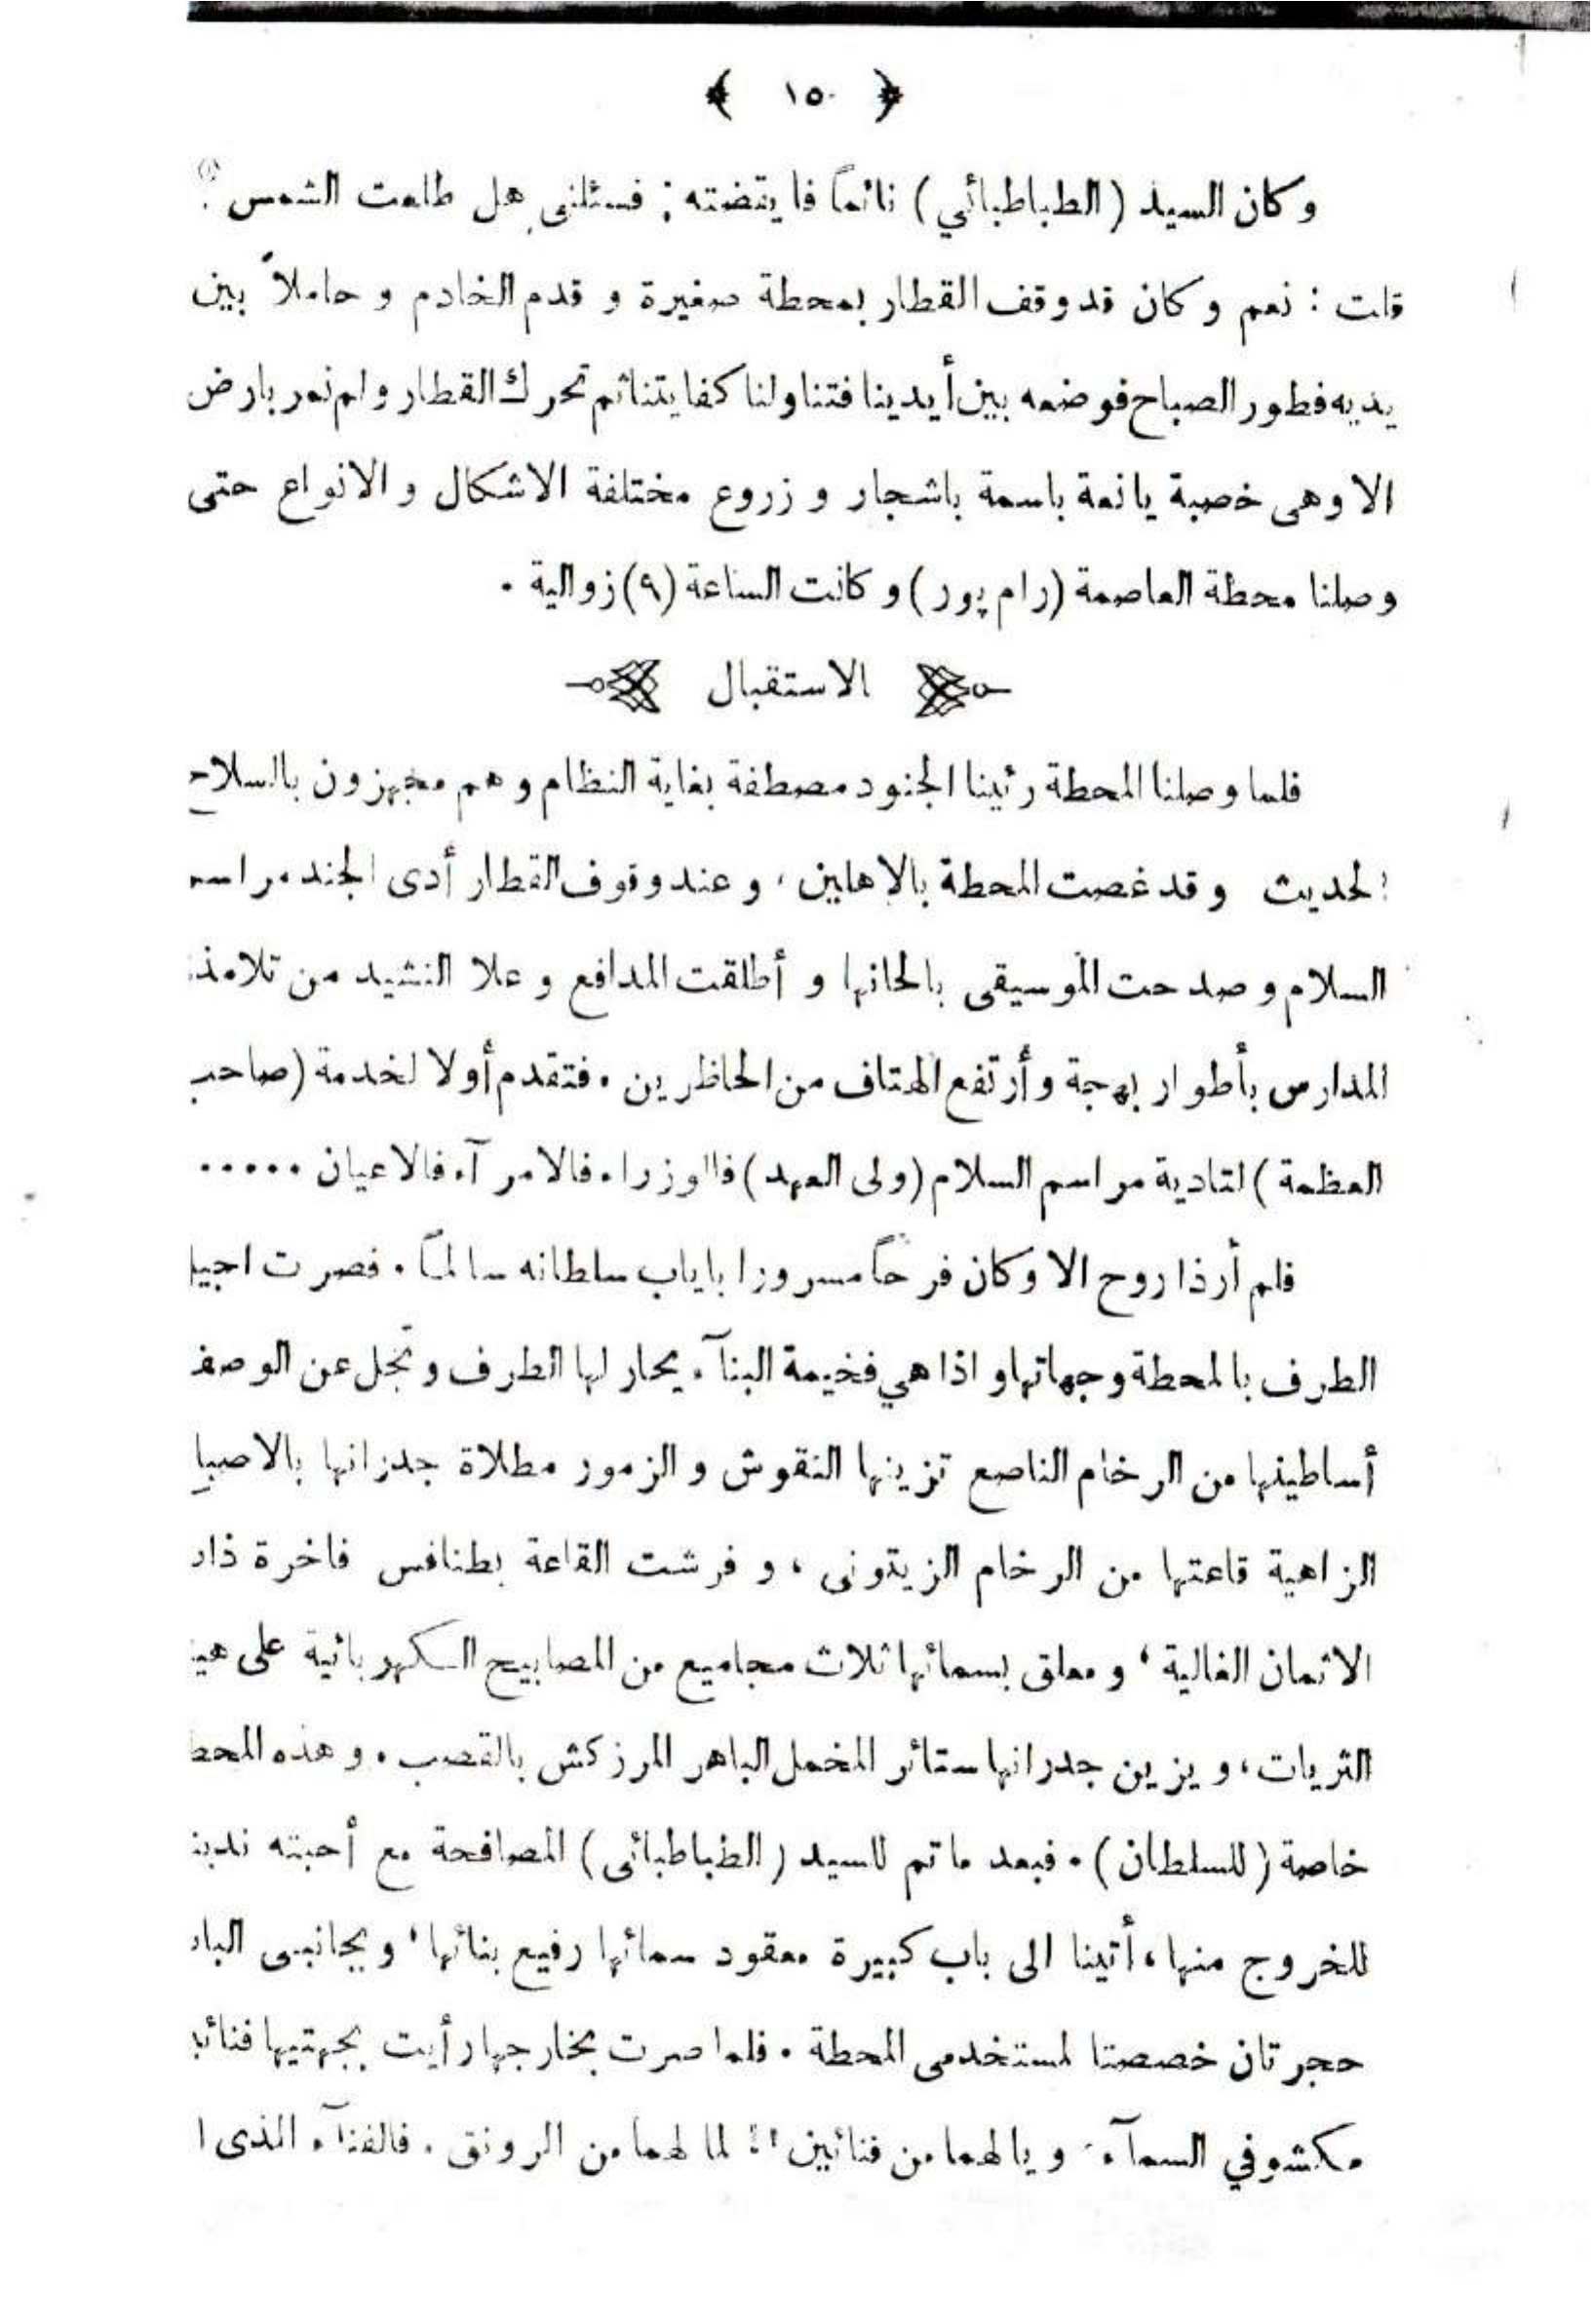 ﴿ ١٥٠ ﴾
وكان السيد (الطباطبائي) نائماً فايقضته ; فسئلنى هل طلعت الشمس ؟
قلت : نعم وكان قد وقف القطار بمحطة صغيرة و قدم الخادم و حاملاً بين
يديه فطور الصباح فوضعه بين أيدينا فتناولنا كفايتنا ثم تحرك القطار ولم نمر بارض
الا وهى خصبة يانعة باسمة باشجار و زروع مختلفة الاشكال و الانواع حتى
وصلنا محطة العاصمة (رام پور) و كانت الساعة (٩) زوالية .
الاستقبال
فلما وصلنا المحطة رئينا الجنود مصطفة بغاية النظام وهم مجهزون بالسلاح
الحديث وقد غصت المحطة بالاهلين ، و عند وقوف القطار أدى الجند مراسم
السلام و صدحت الموسيقى بالحانها و أطلقت المدافع و علا النشيد من تلامذ
المدارس بأطوار بهجة و أرتفع الهتاف من الحاظرين . فتقدم أولا لخدمة (صاحب
العظمة) لتادية مراسم السلام (ولى العهد) فالوزراء فالامرآء فالاعيان .....
فلم أر ذا روح الا وكان فرحاً مسرورا باياب سلطانه سالماً . فصرت اجيل
الطرف بالمحطة وجهاتها و اذا هي فخيمة البنآء يحار لها الطرف و تجل عن الوصف
أساطينها من الرخام الناصع تزينها النقوش و الزمور مطلاة جدرانها بالاصبا
الزاهية قاعتها من الرخام الزيتونى ، و فرشت القاعة بطنافس فاخرة ذات
الاثمان الغالية ، و معلق بسمائها ثلاث مجاميع من المصابيح الكهربائية على هي
الثريات ، و يزين جدرانها ستائر المخمل الباهر المرزكش بالقصب . و هذه المحط
خاصة (للسلطان) . فبعد ما تم للسيد (الطباطبائى) المصافحة مع أحبته ندبنا
للخروج منها ، أتينا الى باب كبيرة معقود سمائها رفيع بنائها ، و بجانبى الباب
حجرتان خصصتا لمستخدمى المحطة . فلما صرت بخارجها رأيت بجهتيها فنائين
مكشوفي السمآء و يا لهما من فنائين !! لما لهما من الرونق . فالفنآء الذى ا